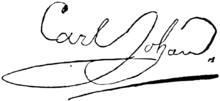 Carl Johan